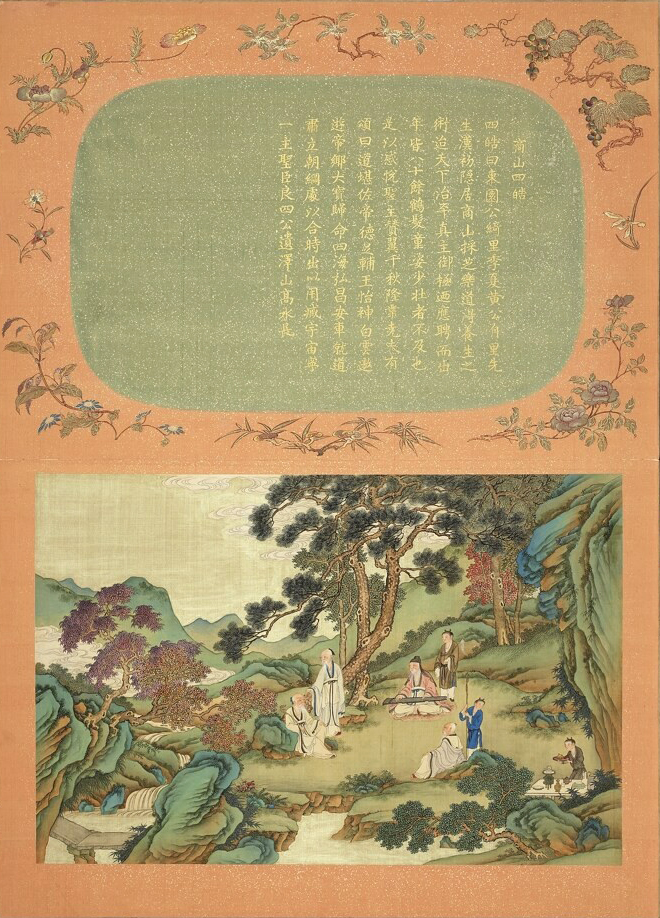 商山四皓
四皓曰東園公綺里季夏黃公甪里先
生漢初隱居商山採芝樂道得養生之
術迨天下治平真主御極迺應聘而出
年皆八十餘鶴髮童姿少壯者不及也
是以感悅聖主贊翼千秋隆業堯夫有
頌曰道堪佐帝德足輔王怡神白雲遨
遊帝鄉大寶歸命四海弘昌安車就道
肅立朝綱處以合時出以用臧宇宙
一主聖臣良四公遺澤山高水長